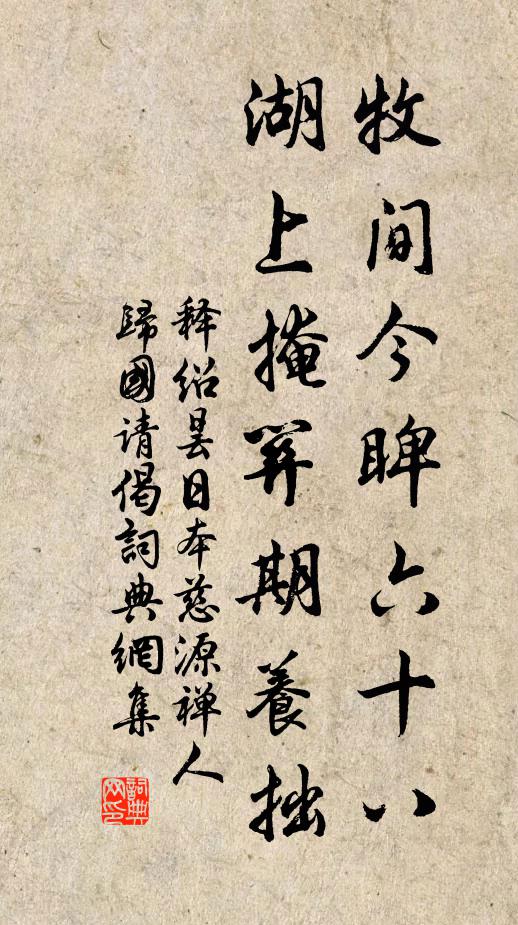 牧间今睥六十八
湖上掩关期養拙
释绍昙日本慈源禅人
歸國请偈詞典網集
詞典网印